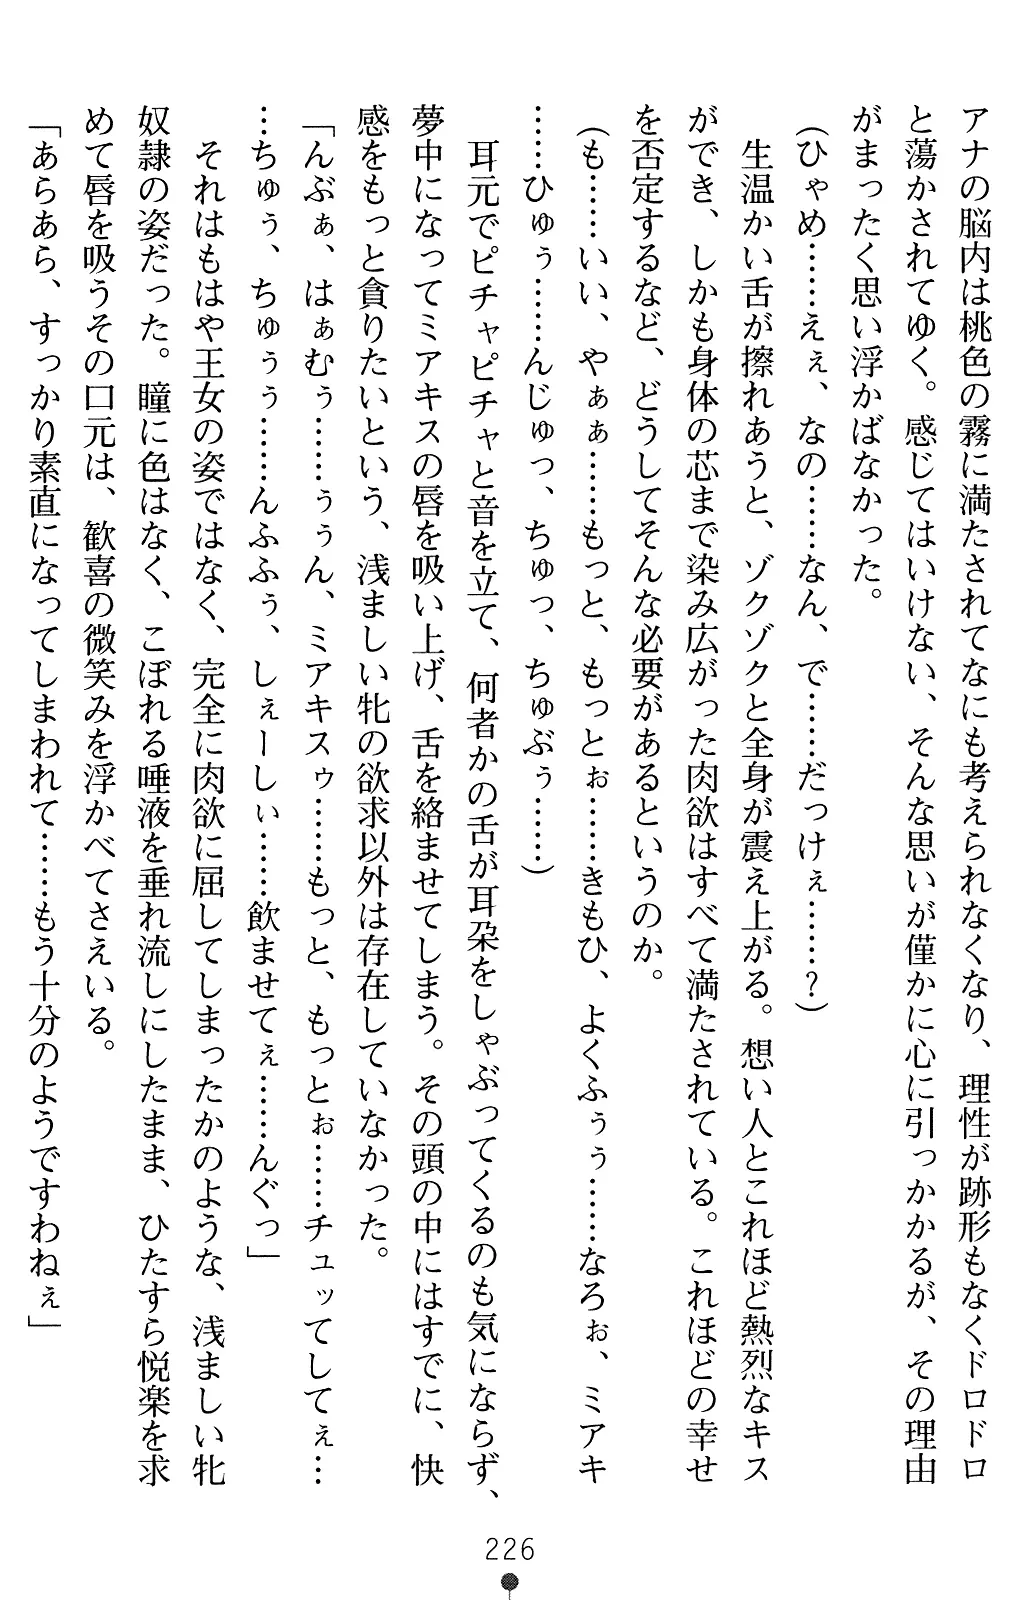 アナの脳内は桃色の霧に満たされてなにも考えられなくなり、理性が跡形もなくドロドロ
と蕩かされてゆく。感じてはいけない、そんな思いが僅かに心に引っかかるが、その理由
がまったく思い浮かばなかった。
(ひゃめ……えぇ、なの……なん、で……だっけぇ……？)
　生温かい舌が擦れあうと、ゾクゾクと全身が震え上がる。想い人とこれほど熱烈なキス
ができ、しかも身体の芯まで染み広がった肉欲はすべて満たされている。これほどの幸せ
を否定するなど、どうしてそんな必要があるというのか。
(も……いい、やぁぁ……もっと、もっとぉ……きもひ、よくふぅぅ……なろぉ、ミアキ
……ひゅぅ……んじゅっ、ちゅっ、ちゅぶぅ……)
　耳元でピチャピチャと音を立て、何者かの舌が耳朶をしゃぶってくるのも気にならず、
夢中になってミアキスの唇を吸い上げ、舌を絡ませてしまう。その頭の中にはすでに、快
感をもっと貪りたいという、浅ましい牝の欲求以外は存在していなかった。
「んぶぁ、はぁむぅ……ぅぅん、ミアキスゥ……もっと、もっとぉ……チュッてしてぇ…
…ちゅぅ、ちゅぅぅ……んふふぅ、しぇーしぃ……飲ませてぇ……んぐっ」
　それはもはや王女の姿ではなく、完全に肉欲に屈してしまったかのような、浅ましい牝
奴隷の姿だった。瞳に色はなく、こぼれる唾液を垂れ流しにしたまま、ひたすら悦楽を求
めて唇を吸うその口元は、歓喜の微笑みを浮かべてさえいる。
「あらあら、すっかり素直になってしまわれて……もう十分のようですわねぇ」
226